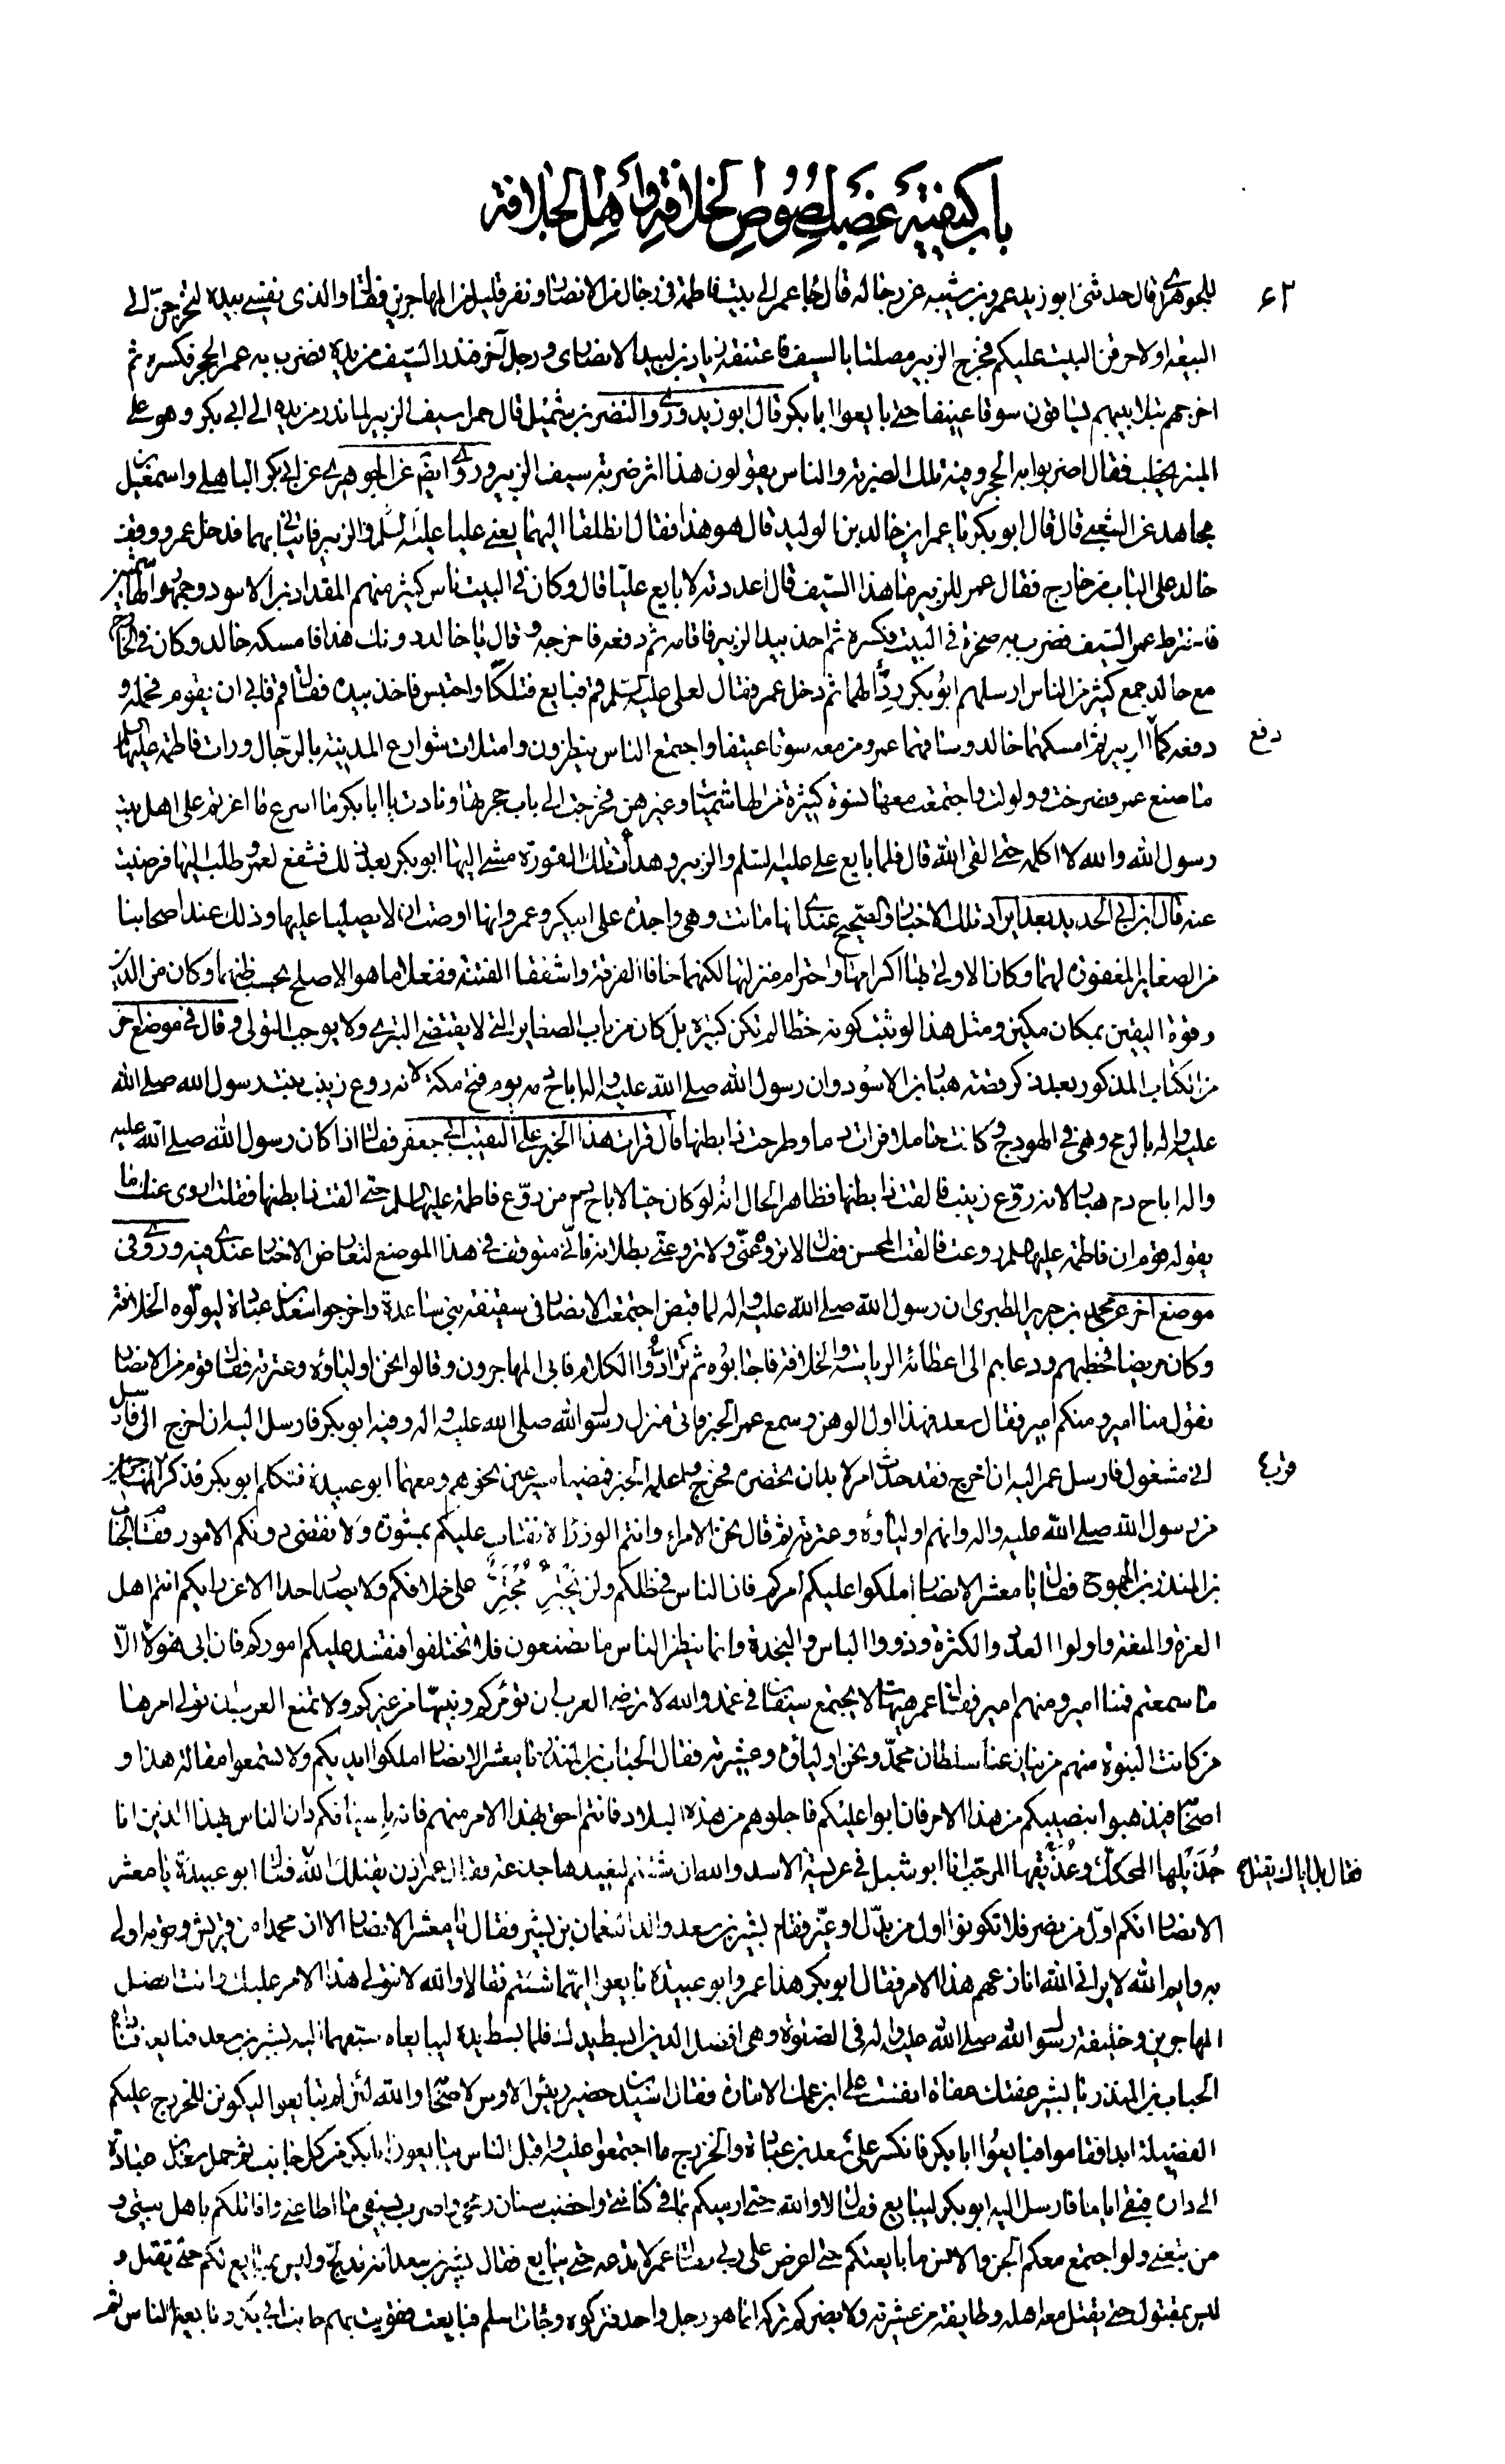 باب كيفية غصب لصوص الخلافة واهل الجلافة
٦٢
للجوهري قال حدثني ابو زيد عمرو بن شيبه عن رجاله قال جاء عمر الى بيت فاطمة في رجال من الانصار ونفر قليل من المهاجرين فقال والذي نفسي بيده لتخرجن الى
البيعة او لاحرقن البيت عليكم فخرج الزبير مصلتا بالسيف فاعتنقه زياد بن لبيد الانصاري ورجل آخر فندر السيف من يده فضرب به عمر الحجر فكسره ثم
اخرجهم بتلابيبهم يساقون سوقا عنيفا حتى بايعوا ابا بكر قال ابو زيد وروى النضر بن شميل قال حمل سيف الزبير لما ندر من يده الى ابي بكر وهو على
المنبر يخطب فقال اضربوا به الحجر وفيه تلك الضربة والناس يقولون هذا اثر ضربة سيف الزبير وروى ايضا عن الجوهري عن ابي بكر الباهلي واسمعيل بن
مجاهد عن الشعبي قال قال ابو بكر يا عمر اين خالد بن الوليد قال هو هذا فقال انطلقا اليهما يعني عليا عليه السلم والزبير فاتياني بهما فدخل عمر ووقف
خالد على الباب من خارج فقال عمر للزبير ما هذا السيف قال اعددته لابايع عليا قال وكان في البيت ناس كثير منهم المقداد بن الاسود وجمهور الهاشميين
فاخترط عمر السيف فضرب به صخرة في البيت فكسره ثم اخذ بيد الزبير فاقامه ثم دفعه فاخرجه وقال يا خالد دونك هذا فامسكه خالد وكان في الخارج
مع خالد جمع كثير من الناس ارسلهم ابو بكر ردءا لهما ثم دخل عمر فقال لعلي عليه السلم قم فبايع فتلكأ واحتبس فاخذ بيده فقال قم فابى ان يقوم فحمله و
دفعه كما الزبير ثم امسكهما خالد وساقهما عمر ومن معه سوقا عنيفا واجتمع الناس ينظرون وامتلات شوارع المدينة بالرجال ورات فاطمة عليها السلم
دفع
ما صنع عمر فصرخت وولولت واجتمعت معها نسوة كثيرة من الهاشميات وغيرهن فخرجت الى باب حجرتها ونادت يا ابا بكر ما اسرع ما اغرتم على اهل بيت
رسول الله والله لا اكلمه حتى القى الله قال فلما بايع علي عليه السلم والزبير وهدات تلك الفورة مشى اليها ابو بكر بعد ذلك فشفع لعمر وطلب اليها فرضيت
عنه قال ابن ابي الحديد بعد ايراد تلك الاخبار والصحيح عندي انها ماتت وهي واجدة على ابي بكر وعمر وانها اوصت ان لا يصليا عليها وذلك عند اصحابنا
من الصغاير المغفورة لهما وكان الاولى بهما اكرامها واحترام منزلتها لكنهما خافا الفرقة واشفقا الفتنة ففعلا ما هو الاصلح بحسب ظنهما وكان من الدين
وقوة اليقين بمكان مكين ومثل هذا لو ثبت كونه خطا لم تكن كبيرة بل كان من باب الصغاير التي لا يقتضي التبري ولا يوجب التولي وقال في موضع اخر
من الكتاب المذكور بعد ذكر قصة هبار بن الاسود وان رسول الله صلى الله عليه واله اباح دمه يوم فتح مكة لانه روع زينب بنت رسول الله صلى الله
عليه واله بالرمح وهي في الهودج وكانت حاملا فرات دما وطرحت ذا بطنها قال قرات هذا الخبر على النقيب ابي جعفر فقال اذا كان رسول الله صلى الله عليه
واله اباح دم هبار لانه روع زينب فالقت ذا بطنها فظاهر الحال انه لو كان حيا لاباح دم من روع فاطمة عليها السلم حتى القت ذا بطنها فقلت اروي عنك ما
يقوله قوم ان فاطمة عليها السلم روعت فالقت المحسن فقال لا تروه عني ولا ترو عني بطلانه فاني متوقف في هذا الموضع لتعارض الاخبار عندي فيه وروى في
موضع اخر عن محمد بن جرير الطبري ان رسول الله صلى الله عليه واله لما قبض اجتمعت الانصار في سقيفة بني ساعدة واخرجوا سعد بن عبادة ليولوه الخلافة
وكان مريضا فخطبهم ودعاهم الى اعطائه الرياسة والخلافة فاجابوه ثم ترادوا الكلام فان ابى المهاجرون وقالوا نحن اولياؤه وعترته فقال قوم من الانصار
نقول منا امير ومنكم امير فقال سعد فهذا اول الوهن وسمع عمر الخبر فاتى منزل رسول الله صلى الله عليه واله وفيه ابو بكر فارسل اليه ان اخرج الي فارسل
اني مشغول فارسل عمر اليه ان اخرج فقد حدث امر لا بد ان تحضره فخرج فاعلمه الخبر فمضيا مسرعين نحوهم ومعهما ابو عبيدة فتكلم ابو بكر فذكر قرب المهاجرين
قرب
من رسول الله صلى الله عليه واله وانهم اولياؤه وعترته ثم قال نحن الامراء وانتم الوزراء لا نفتات عليكم بمشورة ولا نقضي دونكم الامور فقام الحباب
بن المنذر بن الجموح فقال يا معشر الانصار املكوا عليكم امركم فان الناس في ظلكم ولن يجترئ مجترئ على خلافكم ولا يصدر احد الا عن رايكم انتم اهل
العزة والمنعة واولوا العدد والكثرة وذووا الباس والنجدة وانما ينظر الناس ما تصنعون فلا تختلفوا فتفسد عليكم اموركم فان ابى هؤلاء الا
ما سمعتم فمنا امير ومنهم امير فقال عمر هيهات لا يجتمع سيفان في غمد والله لا ترضى العرب ان تؤمركم ونبيها من غيركم ولا تمنع العرب ان تولي امرها
من كانت النبوة منهم من ينازعنا سلطان محمد ونحن اولياؤه وعشيرته فقال الحباب بن المنذر يا معشر الانصار املكوا ايديكم ولا تسمعوا مقالة هذا و
اصحابه فيذهبوا بنصيبكم من هذا الامر فان ابوا عليكم فاجلوهم من هذه البلاد فانتم احق بهذا الامر منهم فانه باسيافكم دان الناس بهذا الدين انا
جذيلها المحكك وعذيقها المرجب انا ابو شبل في عريسة الاسد والله ان شئتم لنعيدها جذعة فقال عمر اذن يقتلك الله فقال ابو عبيدة يا معشر
فقال بل اياك يقتل
الانصار انكم اول من نصر فلا تكونوا اول من بدل او غير فقام بشير بن سعد والد النعمان بن بشير فقال يا معشر الانصار الا ان محمدا من قريش وقومه اولى
به وايم الله لا يراني الله انازعهم هذا الامر فقال ابو بكر هذا عمر وابو عبيدة بايعوا ايهما شئتم فقالا والله لا نتولى هذا الامر عليك وانت افضل
المهاجرين وخليفة رسول الله صلى الله عليه واله في الصلوة وهي افضل الدين ابسط يدك فلما بسط يده ليبايعاه سبقهما اليه بشير بن سعد فبايعه فناداه
الحباب بن المنذر يا بشير عقتك عقاة انفست على ابن عمك الامارة فقال اسيد بن حضير رئيس الاوس لاصحابه والله لئن لم تبايعوا ليكونن للخزرج عليكم
الفضيلة ابدا فقاموا فبايعوا ابا بكر فانكسر على سعد بن عبادة والخزرج ما اجتمعوا عليه واقبل الناس يبايعون ابا بكر من كل جانب ثم حمل سعد بن عبادة
الى داره فبقي اياما فارسل اليه ابو بكر ليبايع فقال لا والله حتى ارميكم بما في كنانتي واخضب سنان رمحي واضرب بسيفي ما اطاعني واقاتلكم باهل بيتي و
من تبعني ولو اجتمع معكم الجن والانس ما بايعتكم حتى اعرض على ربي فقال عمر لا تدعه حتى يبايع فقال بشير بن سعد انه قد لج وليس بمبايع لكم حتى يقتل و
ليس بمقتول حتى يقتل معه اهله وطايفة من عشيرته ولا يضركم تركه انما هو رجل واحد فتركوه وجاءت اسلم فبايعت فقويت بهم جانب ابي بكر وبايعه الناس ثم